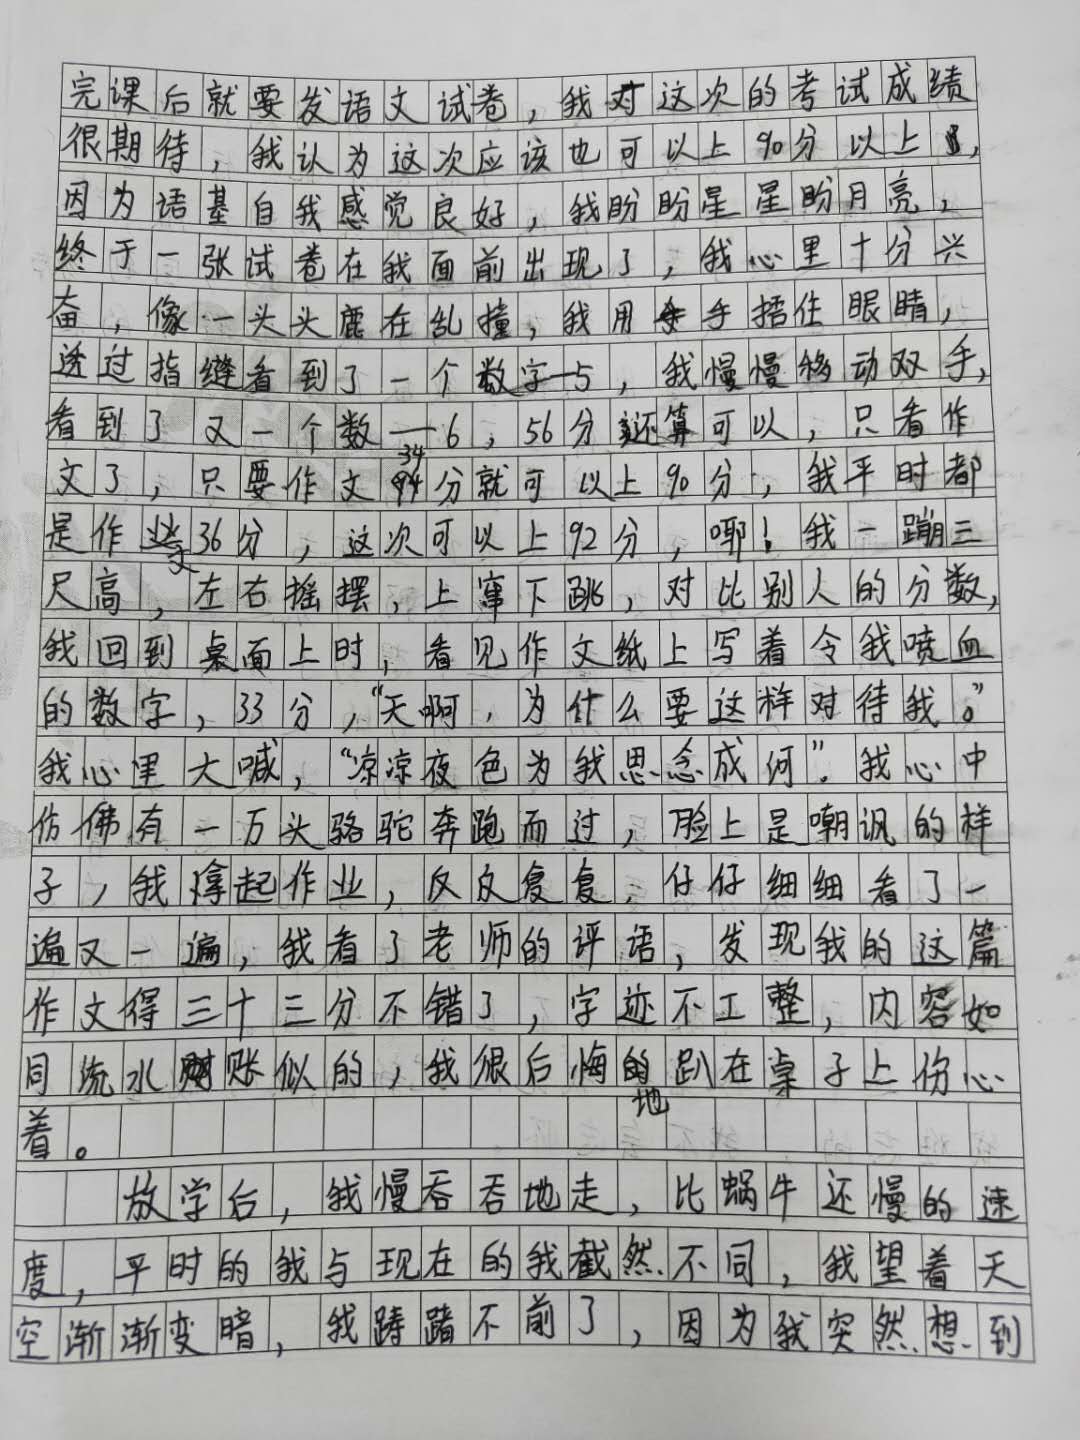 完课后就要发语文试卷，我对这次的考试成绩
很期待，我认为这次应该也可以上90分以上，
因为语基自我感觉良好，我盼盼星星盼月亮，
终于一张试卷在我面前出现了，我心里十分兴
奋，像一头头鹿在乱撞，我用手捂住眼睛，
透过指缝看到了一个数字—5，我慢慢移动双手，
看到了又一个数—6，56分还算可以，只看作
文了，只要作文34分就可以上90分，我平时都
是作文36分，这次可以上92分，哪！我一蹦三
尺高，左右摇摆，上窜下跳，对比别人的分数，
我回到桌面上时，看见作文纸上写着令我喷血
的数字，33分，“天啊，为什么要这样对待我。”
我心里大喊，“凉凉夜色为我思念成何”。我心中
仿佛有一万头骆驼奔跑而过，脸上是嘲讽的样
子，我拿起作业，反反复复，仔仔细细看了一
遍又一遍，我看了老师的评语，发现我的这篇
作文得三十三分不错了，字迹不工整，内容如
同流水账似的，我很后悔地趴在桌子上伤心
着。
放学后，我慢吞吞地走，比蜗牛还慢的速
度，平时的我与现在的我截然不同，我望着天
空渐渐变暗，我踌躇不前了，因为我突然想到